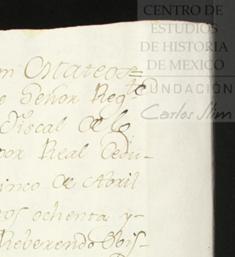 CENTRO DE
ESTUDIOS
DE HISTORIA
DE MEXICO
FUNDACIÓN
Carlos Slim
Mateos
Señor Reg.te
Fiscal de
por Real Cedu-
inco de Abril
os ochenta y-
Reverendo Obis-